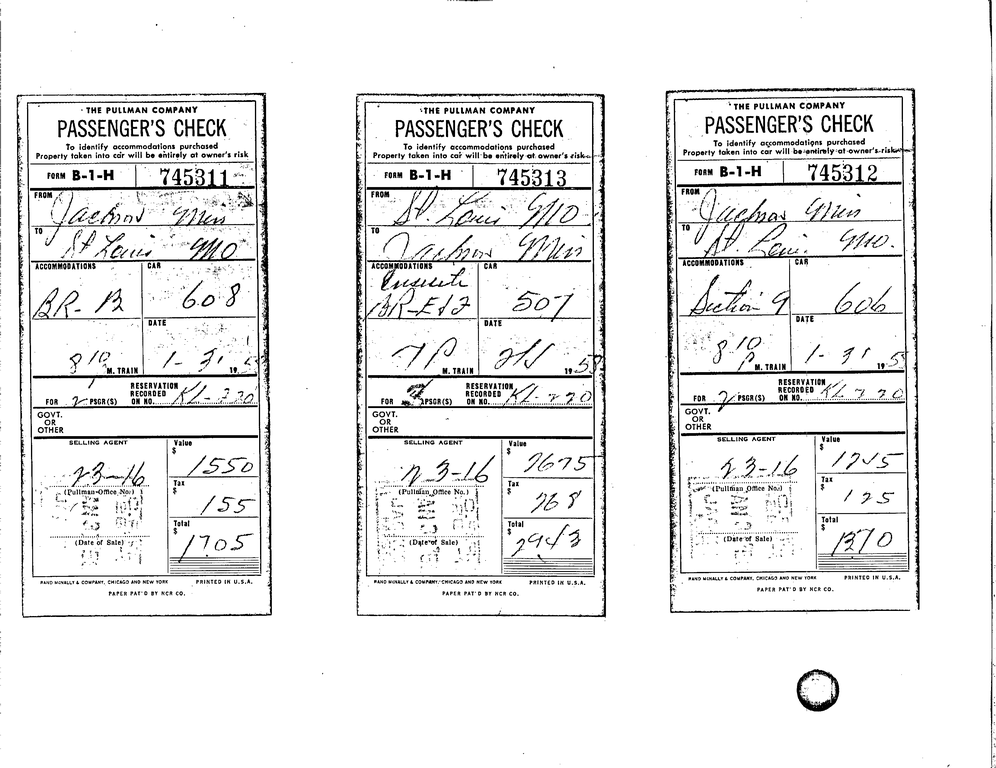 THE PULLMAN COMPANY
PASSENGER'S CHECK
To identify accommodations purchased
Property taken into car will be entirely at owner's risk
FORM B-1-H 745311
FROM Jackson Miss
TO St Louis MO
ACCOMMODATIONS CAR
BR-B 608
DATE
8 10 M. TRAIN 1-31 19
FOR 2 PSGR(S) RESERVATION RECORDED ON NO.
GOVT.
OR
OTHER
SELLING AGENT Value
23-16 $ 1550
(Pullman Office No.) Tax
$ 155
(Date of Sale) Total
$ 1705
RAND McNALLY & COMPANY, CHICAGO AND NEW YORK PRINTED IN U.S.A.
PAPER PAT'D BY NCR CO.
THE PULLMAN COMPANY
PASSENGER'S CHECK
To identify accommodations purchased
Property taken into car will be entirely at owner's risk
FORM B-1-H 745313
FROM St Louis MO
TO Jackson Miss
ACCOMMODATIONS CAR
Ensuite
BR-E&F 507
DATE
7 P M. TRAIN 19
FOR PSGR(S) RESERVATION RECORDED ON NO.
GOVT.
OR
OTHER
SELLING AGENT Value
23-16 $ 2675
(Pullman Office No.) Tax
$ 268
(Date of Sale) Total
$ 2943
RAND McNALLY & COMPANY, CHICAGO AND NEW YORK PRINTED IN U.S.A.
PAPER PAT'D BY NCR CO.
THE PULLMAN COMPANY
PASSENGER'S CHECK
To identify accommodations purchased
Property taken into car will be entirely at owner's risk
FORM B-1-H 745312
FROM Jackson Miss
TO St. Louis MO.
ACCOMMODATIONS CAR
Section 9 606
DATE
8 10 P M. TRAIN 1-31 19
FOR 2 PSGR(S) RESERVATION RECORDED ON NO.
GOVT.
OR
OTHER
SELLING AGENT Value
23-16 $ 1245
(Pullman Office No.) Tax
$ 125
(Date of Sale) Total
$ 1370
RAND McNALLY & COMPANY, CHICAGO AND NEW YORK PRINTED IN U.S.A.
PAPER PAT'D BY NCR CO.